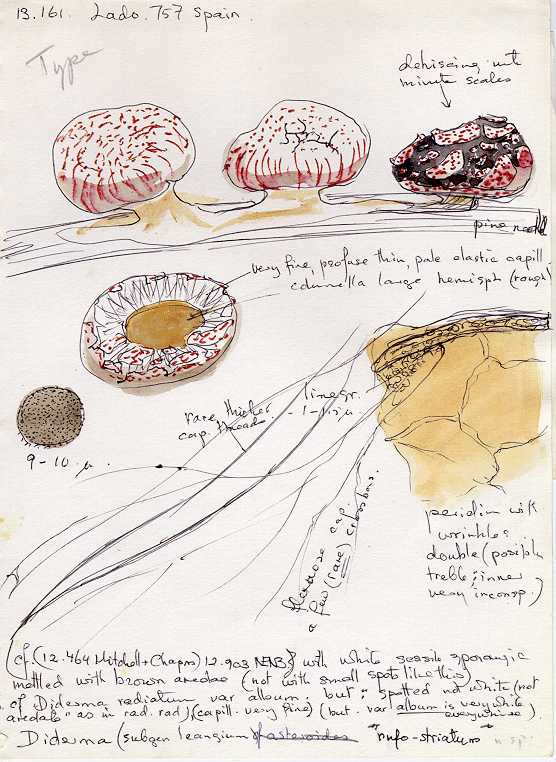 B.161. Lado. 757 Spain.
Type
dehiscing
minute scales
pine needle
very fine, profuse thin, pale elastic capill
columella large hemisph (rough)
rare thicker
cap. threads
linear.
1-1.5 µ.
9-10 µ.
flexuose cap.
a few (rare) crossbars.
peridium with
wrinkles
double (possibly
treble; inner
very inconsp.)
cf. (12.464 Mitchell + Chapm) 12.903 NENB} with white sessile sporangia
mottled with brown areolae (not with small spots like this)
cf Diderma radiatum var album. but: spotted not white (not
areolate as in rad. rad) (capill. very fine) (but. var album is very white
everywhere)
Diderma (subgen Leangium) asteroides rufo-striatum n. sp.